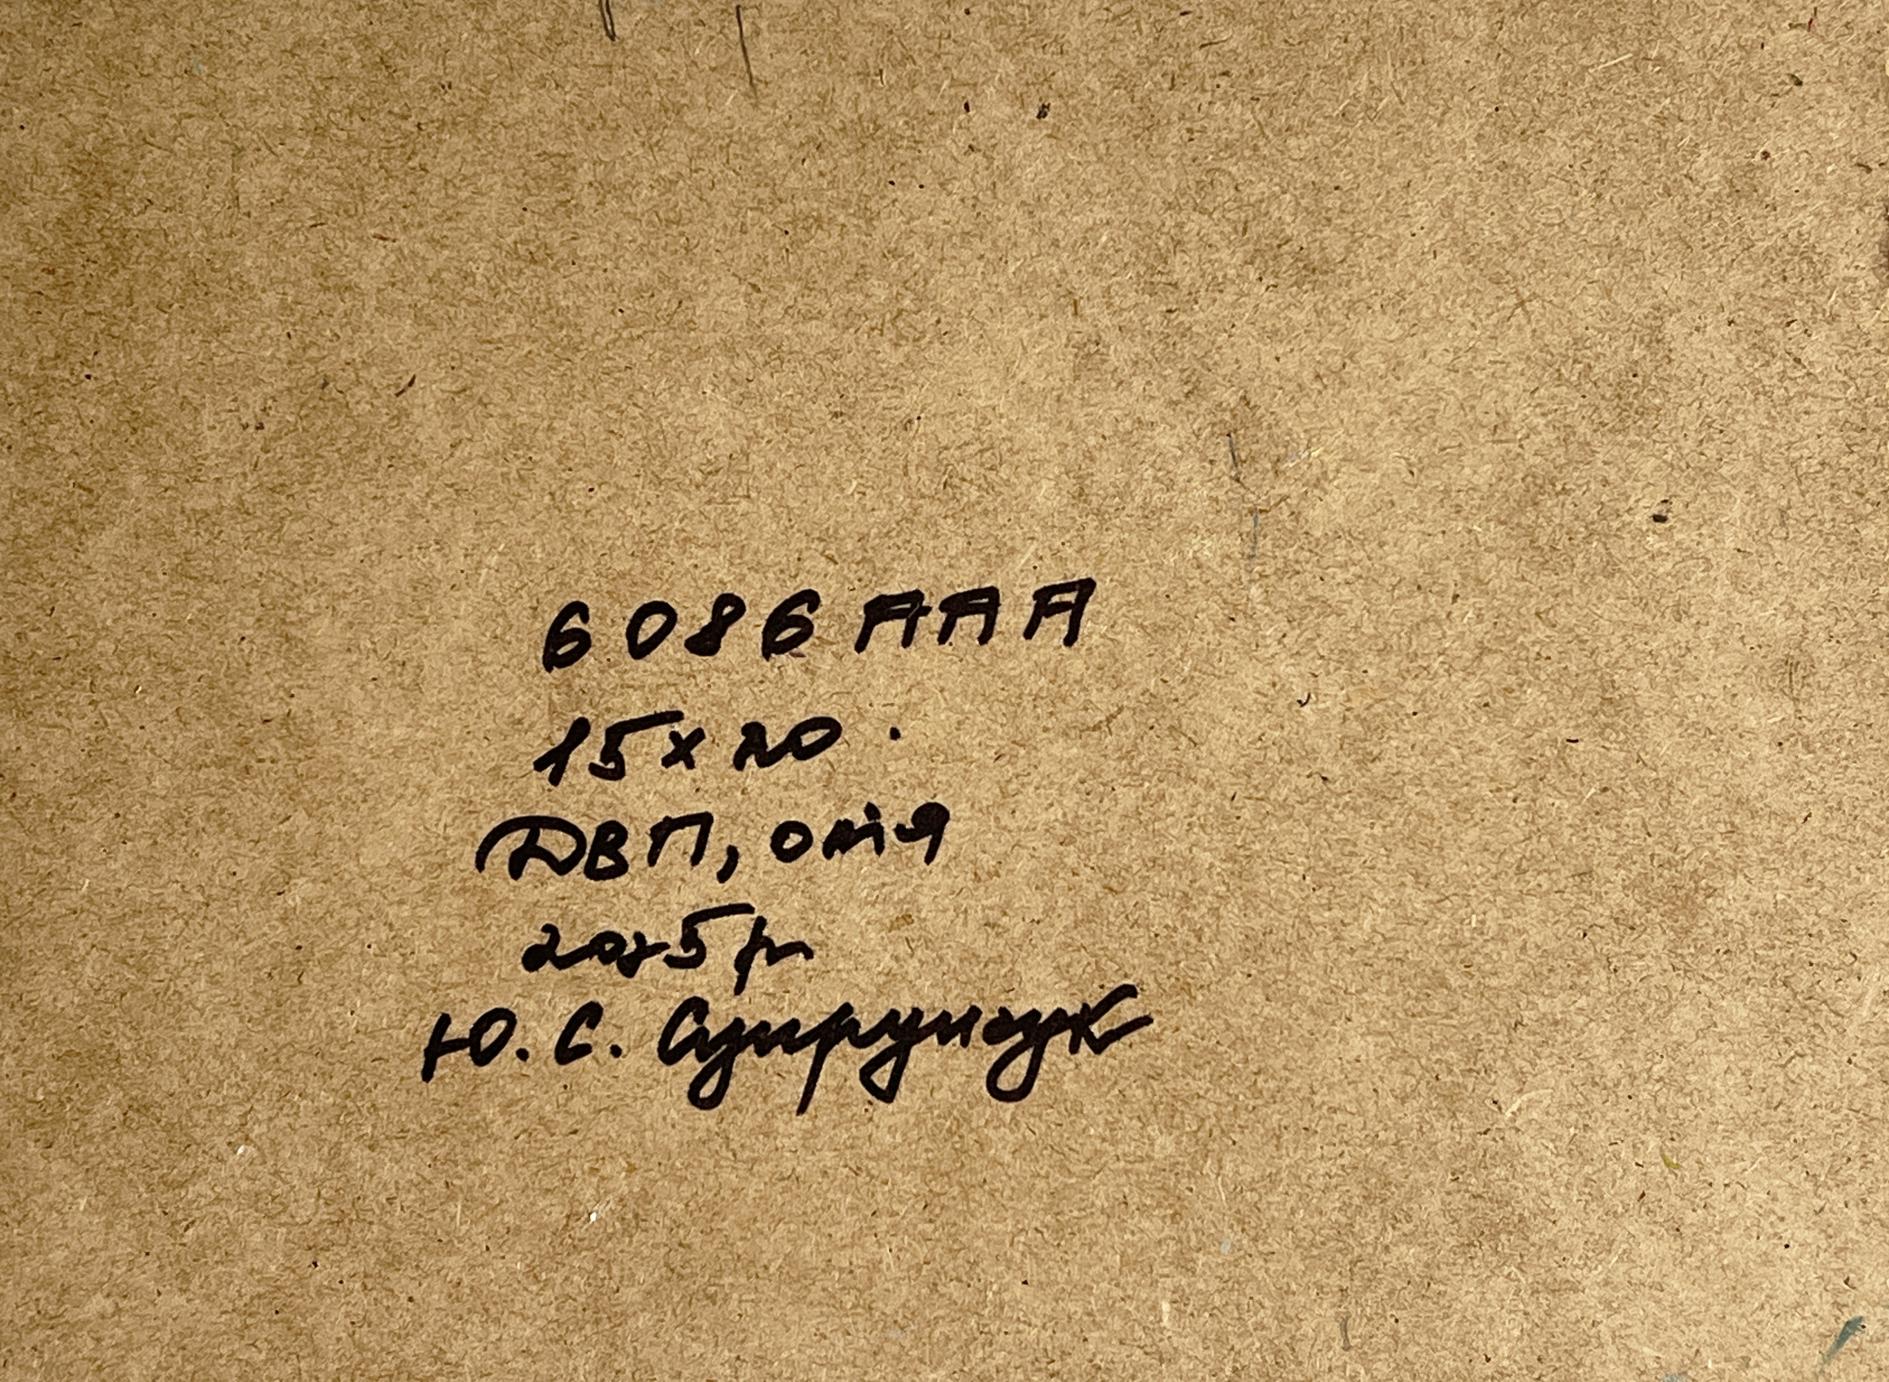 6086 ААА
15х20.
ДВП, олія
2025р
Ю. С. Супрунчук